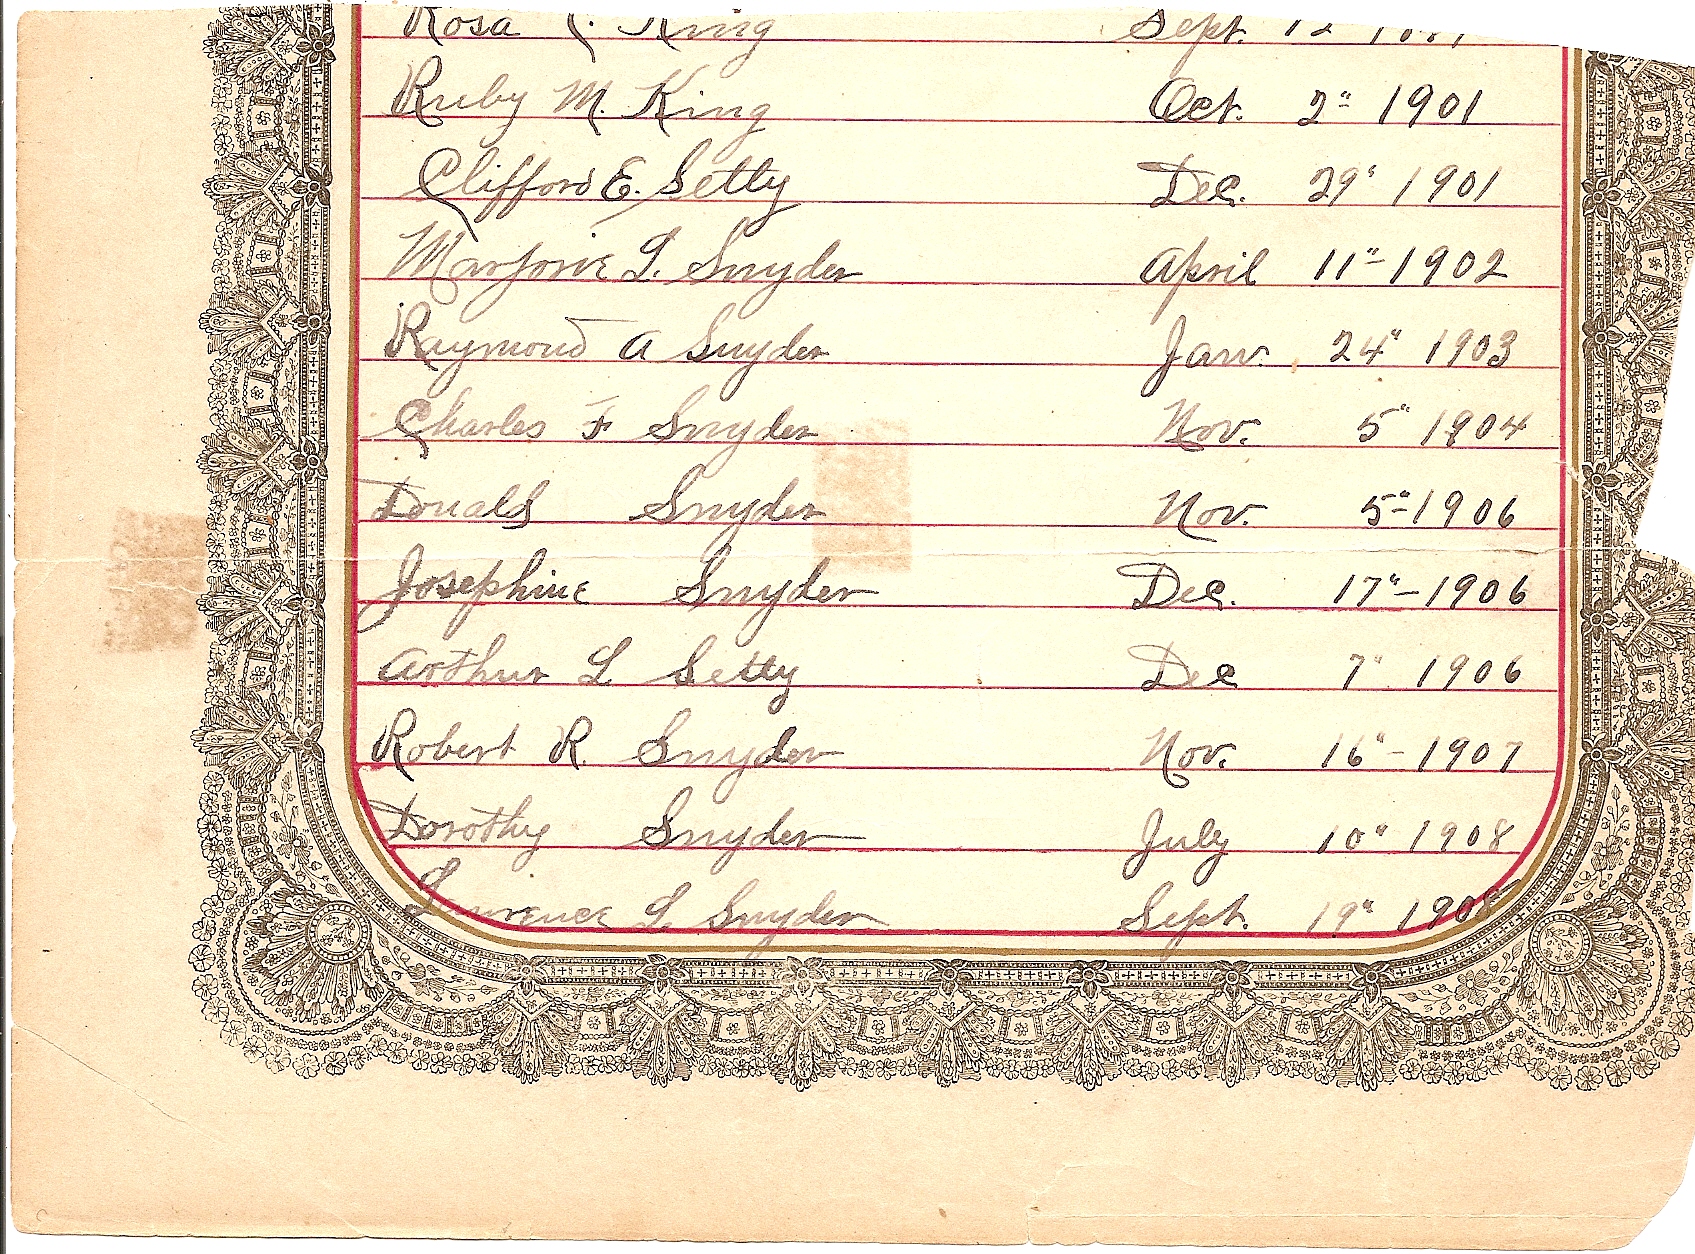 Rosa King Sept. 12
Ruby M. King Oct. 2" 1901
Clifford E. Setty Dec. 29" 1901
Marjorie L. Snyder April 11" - 1902
Raymond A Snyder Jan. 24" 1903
Charles F Snyder Nov. 5" 1904
Donald Snyder Nov. 5" - 1906
Josephine Snyder Dec. 17" - 1906
Arthur L Setty Dec 7" 1906
Robert R. Snyder Nov. 16" - 1907
Dorothy Snyder July 10" 1908
Lawrence L. Snyder Sept. 19" 1908